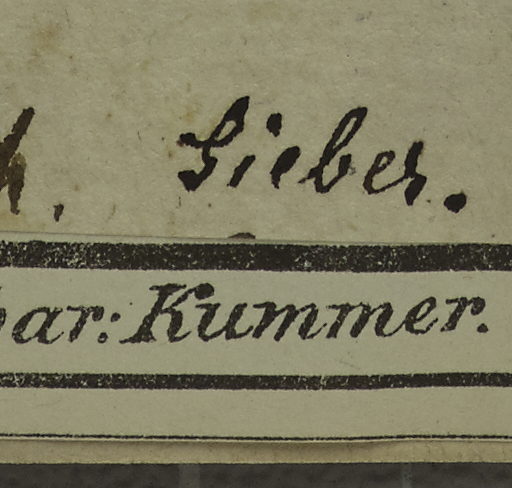 h. Sieber.
bar: Kummer.